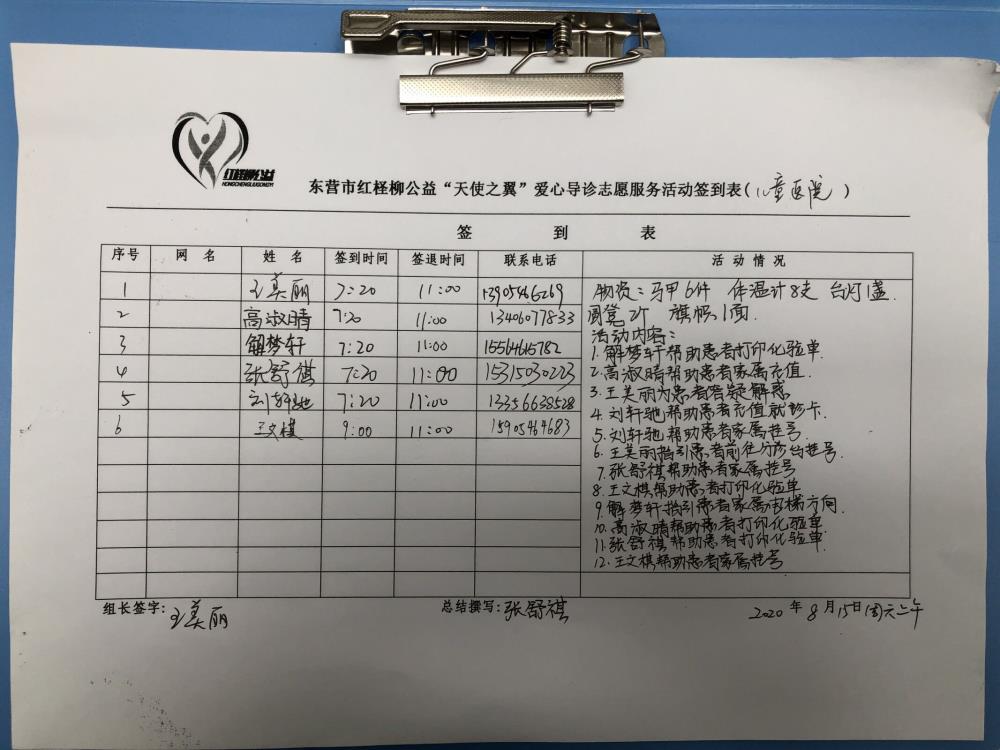 红柽柳公益
HONGCHENGLIUGONGYI
东营市红柽柳公益“天使之翼”爱心导诊志愿服务活动签到表(儿童医院)
签 到 表
序号 网 名 姓 名 签到时间 签退时间 联系电话 活 动 情 况
1 王美丽 7:20 11:00 13905466269
2 高淑晴 7:20 11:00 13406077833
3 解梦轩 7:20 11:00 15564615782
4 张舒祺 7:20 11:00 15315030223
5 刘轩驰 7:20 11:00 13356638528
6 王文棋 9:00 11:00 15905464683
物资:马甲6件 体温计8支 台灯1盏.
圆凳2个 旗帜1面.
活动内容:
1.解梦轩帮助患者打印化验单.
2.高淑晴帮助患者家属充值.
3.王美丽为患者答疑解惑
4.刘轩驰帮助患者充值就诊卡.
5.刘轩驰帮助患者家属挂号.
6.王美丽指引患者前往分诊台挂号.
7.张舒祺帮助患者家属挂号
8.王文棋帮助患者打印化验单
9.解梦轩指引患者家属电梯方向.
10.高淑晴帮助患者打印化验单.
11.张舒祺帮助患者打印化验单.
12.王文棋帮助患者家属挂号
组长签字:王美丽 总结撰写:张舒祺 2020年8月15日(周六上午